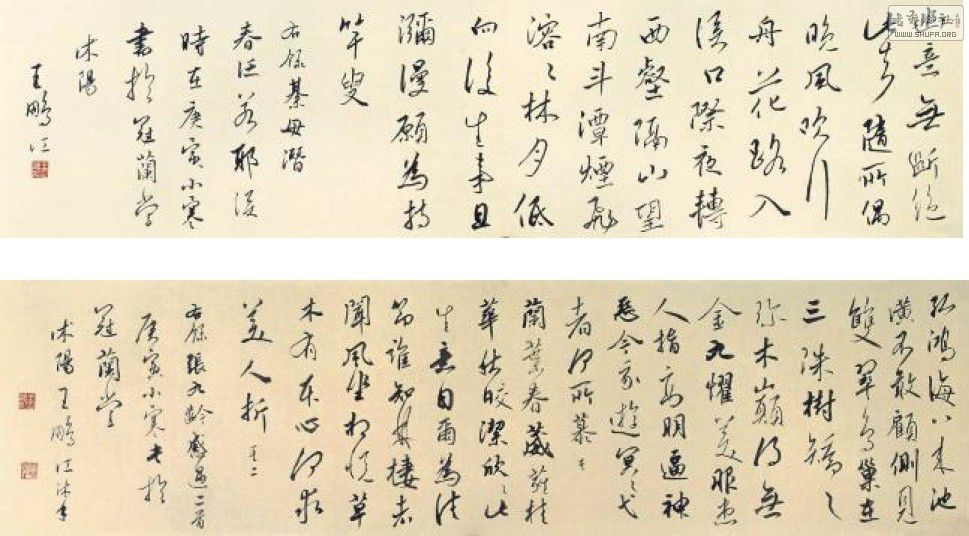 幽意無斷絕
此去隨所偶
晚風吹行
舟花路入
溪口際夜轉
西壑隔山望
南斗潭煙飛
溶〻林月低
向後生事且
瀰漫願為持
竿叟
右錄綦毋潛
春泛若耶溪
時在庚寅小寒
書於冠蘭堂
沭陽
王鵬江
孤鴻海上來池
潢不敢顧側見
雙翠鳥巢在
三珠樹矯〻
珍木巔得無
金丸懼美服患
人指高明逼神
惡今我遊冥〻弋
者何所慕 其一
蘭葉春葳蕤桂
華秋皎潔欣〻此
生意自爾為佳
節誰知林棲者
聞風坐相悅草
木有本心何求
美人折 其二
右錄張九齡感遇二首
庚寅小寒書於
冠蘭堂
沭陽王鵬江沐手
WWW.SHUFA.ORG